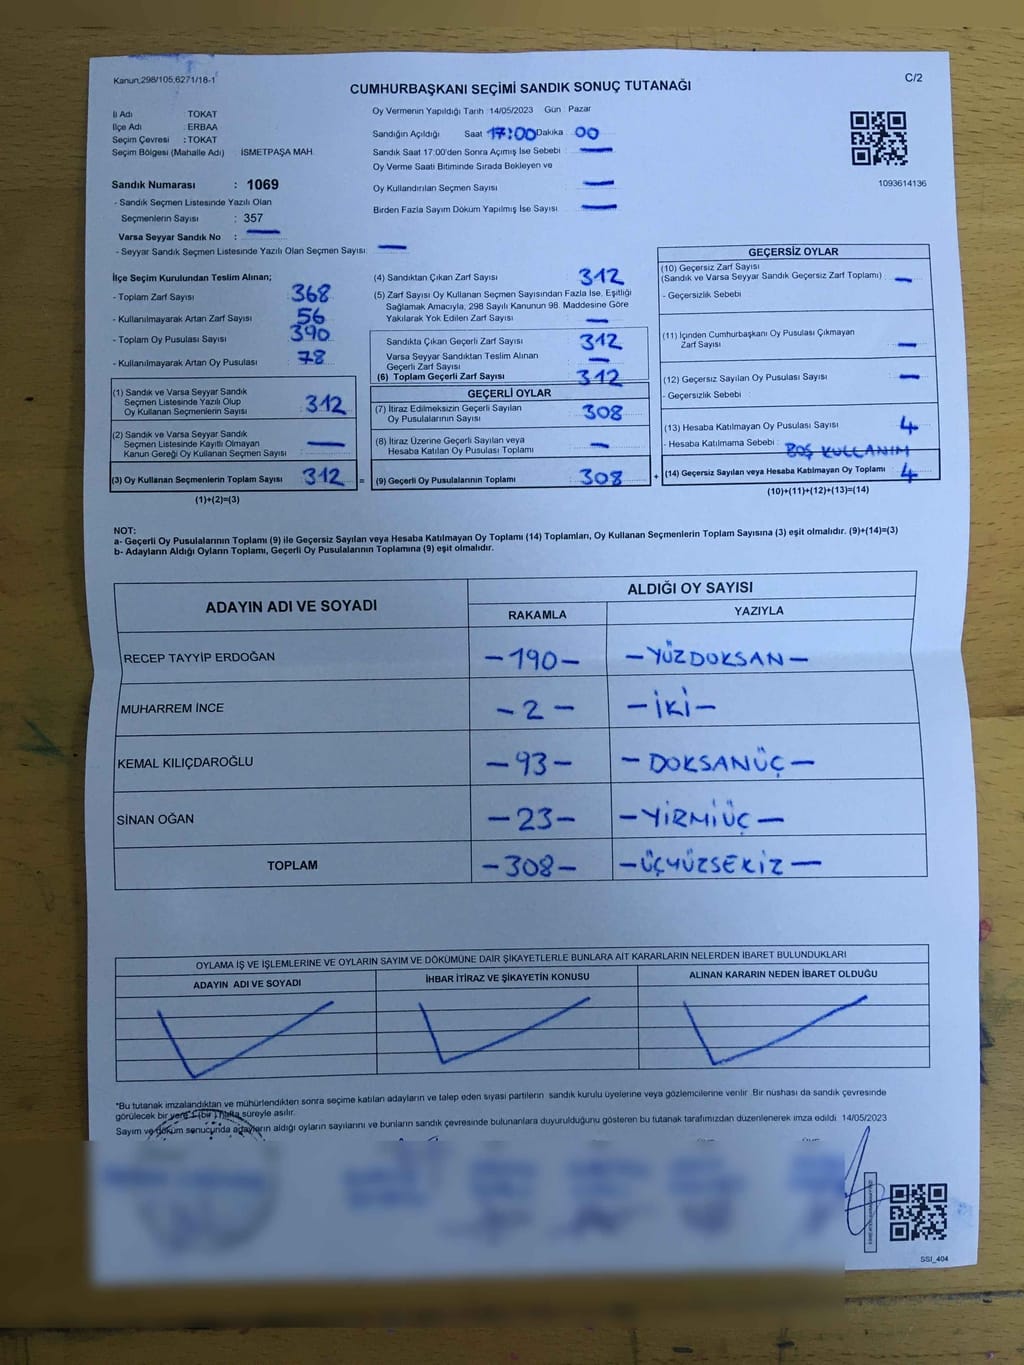 Kanun,298/105,6271/18-1
C/2
CUMHURBAŞKANI SEÇİMİ SANDIK SONUÇ TUTANAĞI
İl Adı : TOKAT
İlçe Adı : ERBAA
Seçim Çevresi : TOKAT
Seçim Bölgesi (Mahalle Adı) İSMETPAŞA MAH.
Sandık Numarası : 1069
- Sandık Seçmen Listesinde Yazılı Olan
Seçmenlerin Sayısı : 357
Varsa Seyyar Sandık No : —
- Seyyar Sandık Seçmen Listesinde Yazılı Olan Seçmen Sayısı: —
Oy Vermenin Yapıldığı Tarih 14/05/2023 Gün Pazar
Sandığın Açıldığı Saat 17:00 Dakika 00
Sandık Saat 17:00'den Sonra Açımış İse Sebebi : —
Oy Verme Saati Bitiminde Sırada Bekleyen ve
Oy Kullandırılan Seçmen Sayısı : —
Birden Fazla Sayım Döküm Yapılmış İse Sayısı : —
1093614136
İlçe Seçim Kurulundan Teslim Alınan;
- Toplam Zarf Sayısı : 368
- Kullanılmayarak Artan Zarf Sayısı : 56
- Toplam Oy Pusulası Sayısı : 390
- Kullanılmayarak Artan Oy Pusulası : 78
(1) Sandık ve Varsa Seyyar Sandık
Seçmen Listesinde Yazılı Olup
Oy Kullanan Seçmenlerin Sayısı : 312
(2) Sandık ve Varsa Seyyar Sandık
Seçmen Listesinde Kayıtlı Olmayan
Kanun Gereği Oy Kullanan Seçmen Sayısı : —
(3) Oy Kullanan Seçmenlerin Toplam Sayısı : 312 =
(1)+(2)=(3)
(4) Sandıktan Çıkan Zarf Sayısı : 312
(5) Zarf Sayısı Oy Kullanan Seçmen Sayısından Fazla İse, Eşitliği
Sağlamak Amacıyla, 298 Sayılı Kanunun 98. Maddesine Göre
Yakılarak Yok Edilen Zarf Sayısı : —
Sandıkta Çıkan Geçerli Zarf Sayısı : 312
Varsa Seyyar Sandıktan Teslim Alınan
Geçerli Zarf Sayısı : —
(6) Toplam Geçerli Zarf Sayısı : 312
GEÇERLİ OYLAR
(7) İtiraz Edilmeksizin Geçerli Sayılan
Oy Pusulalarının Sayısı : 308
(8) İtiraz Üzerine Geçerli Sayılan veya
Hesaba Katılan Oy Pusulası Toplamı : —
(9) Geçerli Oy Pusulalarının Toplamı : 308 +
GEÇERSİZ OYLAR
(10) Geçersiz Zarf Sayısı
(Sandık ve Varsa Seyyar Sandık Geçersiz Zarf Toplamı) : —
- Geçersizlik Sebebi
(11) İçinden Cumhurbaşkanı Oy Pusulası Çıkmayan
Zarf Sayısı : —
(12) Geçersiz Sayılan Oy Pusulası Sayısı : —
- Geçersizlik Sebebi :
(13) Hesaba Katılmayan Oy Pusulası Sayısı : 4
- Hesaba Katılmama Sebebi : BOŞ KULLANIM
(14) Geçersiz Sayılan veya Hesaba Katılmayan Oy Toplamı : 4
(10)+(11)+(12)+(13)=(14)
NOT:
a- Geçerli Oy Pusulalarının Toplamı (9) ile Geçersiz Sayılan veya Hesaba Katılmayan Oy Toplamı (14) Toplamları, Oy Kullanan Seçmenlerin Toplam Sayısına (3) eşit olmalıdır. (9)+(14)=(3)
b- Adayların Aldığı Oyların Toplamı, Geçerli Oy Pusulalarının Toplamına (9) eşit olmalıdır.
ADAYIN ADI VE SOYADI
ALDIĞI OY SAYISI
RAKAMLA YAZIYLA
RECEP TAYYİP ERDOĞAN -190- -YÜZDOKSAN-
MUHARREM İNCE -2- -İKİ-
KEMAL KILIÇDAROĞLU -93- -DOKSANÜÇ-
SİNAN OĞAN -23- -YİRMİÜÇ-
TOPLAM -308- -ÜÇYÜZSEKİZ-
OYLAMA İŞ VE İŞLEMLERİNE VE OYLARIN SAYIM VE DÖKÜMÜNE DAİR ŞİKAYETLERLE BUNLARA AİT KARARLARIN NELERDEN İBARET BULUNDUKLARI
ADAYIN ADI VE SOYADI İHBAR İTİRAZ VE ŞİKAYETİN KONUSU ALINAN KARARIN NEDEN İBARET OLDUĞU
*Bu tutanak imzalandıktan ve mühürlendikten sonra seçime katılan adayların ve talep eden siyasi partilerin sandık kurulu üyelerine veya gözlemcilerine verilir. Bir nüshası da sandık çevresinde
görülecek bir yere 1 (bir ) hafta süreyle asılır.
Sayım ve döküm sonucunda adayların aldığı oyların sayılarını ve bunların sandık çevresinde bulunanlara duyurulduğunu gösteren bu tutanak tarafımızdan düzenlenerek imza edildi. 14/05/2023
SSI_404